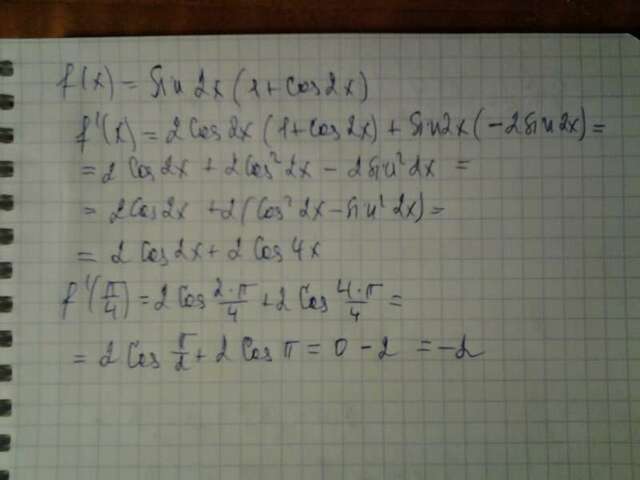 f(x) = Sin 2x (1 + Cos 2x)
f'(x) = 2 Cos 2x (1 + Cos 2x) + Sin 2x (-2 Sin 2x) =
= 2 Cos 2x + 2 Cos² 2x - 2 Sin² 2x =
= 2 Cos 2x + 2 (Cos² 2x - Sin² 2x) =
= 2 Cos 2x + 2 Cos 4x
f'(π/4) = 2 Cos 2·π/4 + 2 Cos 4·π/4 =
= 2 Cos π/2 + 2 Cos π = 0 - 2 = -2